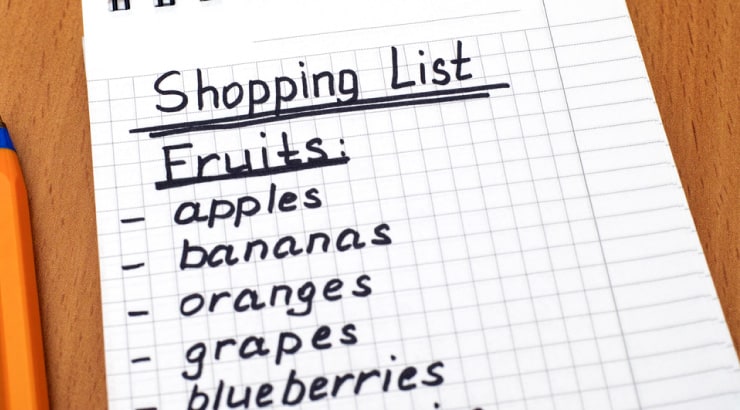 Shopping List
Fruits:
- apples
- bananas
- oranges
- grapes
- blueberries